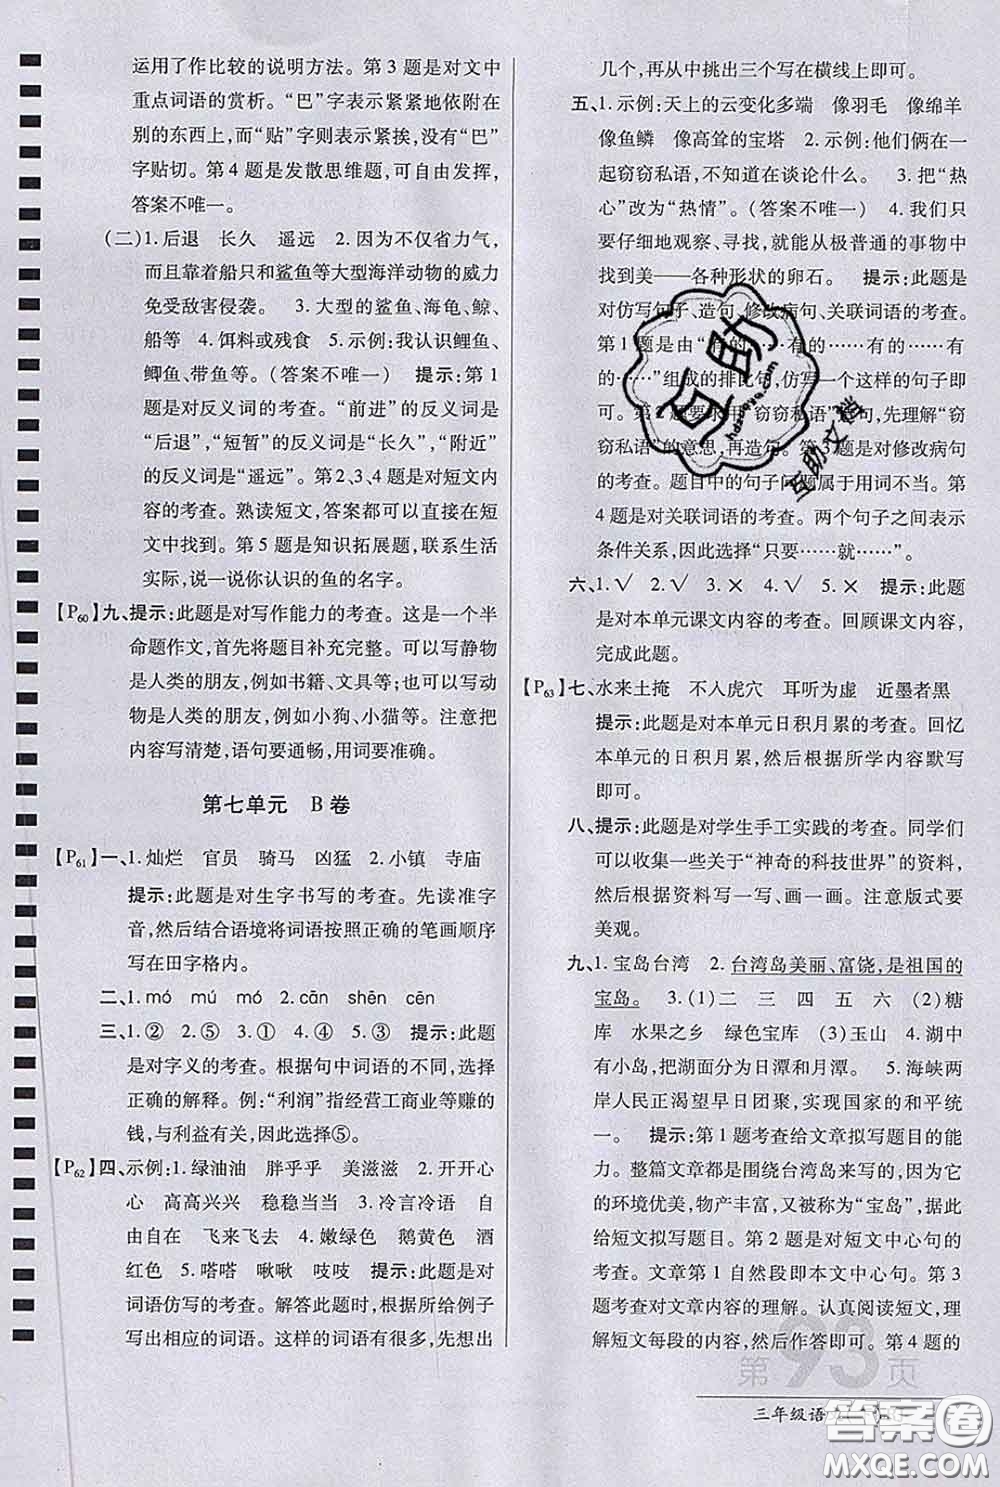 运用了作比较的说明方法。第 3 题是对文中
重点词语的赏析。“巴”字表示紧紧地依附在
别的东西上,而“贴”字则表示紧挨,没有“巴”
字贴切。第 4 题是发散思维题,可自由发挥,
答案不唯一。
(二)1. 后退　长久　遥远　2. 因为不仅省力气,
而且靠着船只和鲨鱼等大型海洋动物的威力
免受敌害侵袭。　3. 大型的鲨鱼、海龟、鲸、
船等　4. 饵料或残食　5. 示例:我认识鲤鱼、
鲫鱼、带鱼等。(答案不唯一)　提示:第 1
题是对反义词的考查。“前进”的反义词是
“后退”,“短暂”的反义词是“长久”,“附近”
的反义词是“遥远”。第2、3、4 题是对短文内
容的考查。熟读短文,答案都可以直接在短
文中找到。第 5 题是知识拓展题,联系生活
实际,说一说你认识的鱼的名字。
【P60】九、提示:此题是对写作能力的考查。这是一个半
命题作文,首先将题目补充完整。可以写静物
是人类的朋友,例如书籍、文具等;也可以写动
物是人类的朋友,例如小狗、小猫等。注意把
内容写清楚,语句要通畅,用词要准确。
第七单元　B 卷
【P61】一、1. 灿烂　官员　骑马　凶猛　2. 小镇　寺庙
提示:此题是对生字书写的考查。先读准字
音,然后结合语境将词语按照正确的笔画顺序
写在田字格内。
二、1. mó　mú　mó　2. cān　shēn　cēn
三、1. ②　2. ⑤　3. ①　4. ④　5. ③　提示:此题
是对字义的考查。根据句中词语的不同,选择
正确的解释。例:“利润”指经营工商业等赚的
钱,与利益有关,因此选择⑤。
【P62】四、示例:1. 绿油油　胖乎乎　美滋滋　2. 开开心
心　高高兴兴　稳稳当当　3. 冷言冷语　自
由自在　飞来飞去　4. 嫩绿色　鹅黄色　酒
红色　5. 嗒嗒　啾啾　吱吱　提示:此题是对
词语仿写的考查。解答此题时,根据所给例子
写出相应的词语。这样的词语有很多,先想出
几个,再从中挑出三个写在横线上即可。
五、1. 示例:天上的云变化多端　像羽毛　像绵羊
像鱼鳞　像高耸的宝塔　2. 示例:他们俩在一
起窃窃私语,不知道在谈论什么。　3. 把“热
心”改为“热情”。(答案不唯一)　4. 我们只
要仔细地观察、寻找,就能从极普通的事物中
找到美——各种形状的卵石。　提示:此题是
对仿写句子、造句、修改病句、关联词语的考查。
第 1 题是由“有的……有的……有的……有
的……”组成的排比句,仿写一个这样的句子即
可。第 2 题要求用“窃窃私语”造句,先理解“窃
窃私语”的意思,再造句。第 3 题是对修改病句
的考查。题目中的句子问题属于用词不当。第
4 题是对关联词语的考查。两个句子之间表示
条件关系,因此选择“只要……就……”。
六、1. √　2. √　3. ×　4. √　5. ×　提示:此题
是对本单元课文内容的考查。回顾课文内容,
完成此题。
【P63】七、水来土掩　不入虎穴　耳听为虚　近墨者黑
提示:此题是对本单元日积月累的考查。回忆
本单元的日积月累,然后根据所学内容默写
即可。
八、提示:此题是对学生手工实践的考查。同学们
可以收集一些关于“神奇的科技世界”的资料,
然后根据资料写一写、画一画。注意版式要
美观。
九、1. 宝岛台湾　2. 台湾岛美丽、富饶,是祖国的
宝岛。　3. (1)二　三　四　五　六　(2)糖
库　水果之乡　绿色宝库　(3)玉山　4. 湖中
有小岛,把湖面分为日潭和月潭。　5. 海峡两
岸人民正渴望早日团聚,实现国家的和平统
一。　提示:第 1 题考查给文章拟写题目的能
力。整篇文章是围绕台湾岛来写的,因为它
的环境优美,物产丰富,又被称为“宝岛”,据此
给短文拟写题目。第 2 题是对短文中心句的
考查。文章第 1 自然段即本文中心句。第 3
题考查对文章内容的理解。认真阅读短文,理
解短文每段的内容,然后作答即可。第 4 题的
第93页
三年级语
互助
hdzuoye.com
互助文档
答案圈
MXQE.COM